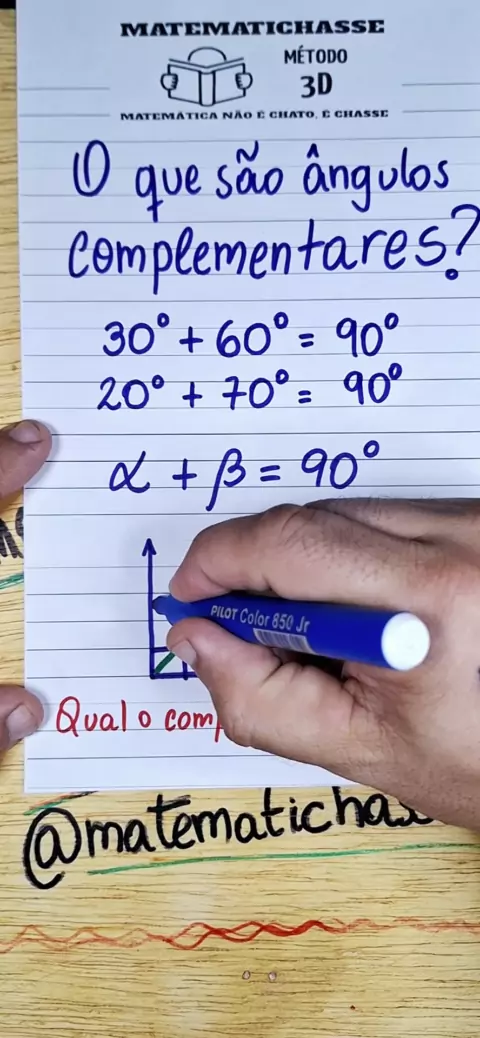 MATEMATICHASSE
MÉTODO
3D
MATEMÁTICA NÃO É CHATO, É CHASSE
O que são ângulos
complementares?
30° + 60° = 90°
20° + 70° = 90°
α + β = 90°
PILOT Color 850 Jr
Qual o
@matematicha